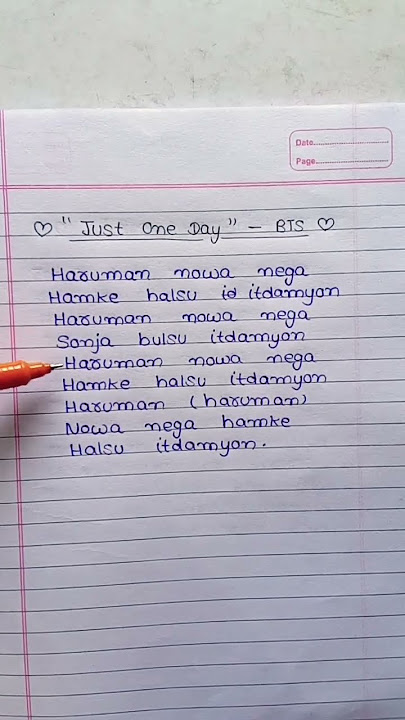 Date..............................
Page..............................
♡ "Just One Day" – BTS ♡
Haruman nowa nega
Hamke halsu id itdamyon
Haruman nowa nega
Sonja bulsu itdamyon
Haruman nowa nega
Hamke halsu itdamyon
Haruman (haruman)
Nowa nega hamke
Halsu itdamyon.